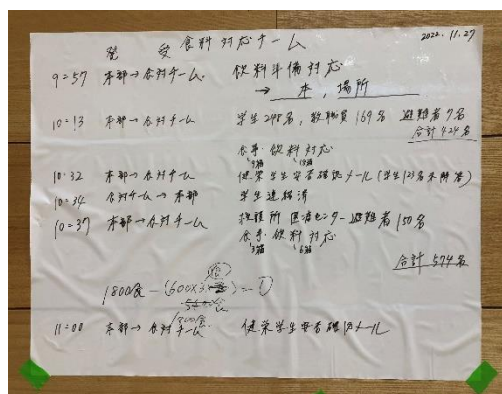 2022.11.27
発 受 食料対応チーム
9:57 本部→食対チーム 飲料準備対応
→ 本, 場所
10:13 本部→食対チーム 学生248名, 教職員169名 避難者7名
合計424名
食事・飲料対応
10:32 本部→食対チーム 健栄学生安否確認メール(学生123名未解答)
10:34 食対チーム→本部 学生連絡済
10:37 本部→食対チーム 救護所 医療センター 避難者150名
食事・飲料対応
合計574名
1800食 - (600×3
11:00 本部→食対チーム 健栄学生安否確認メール